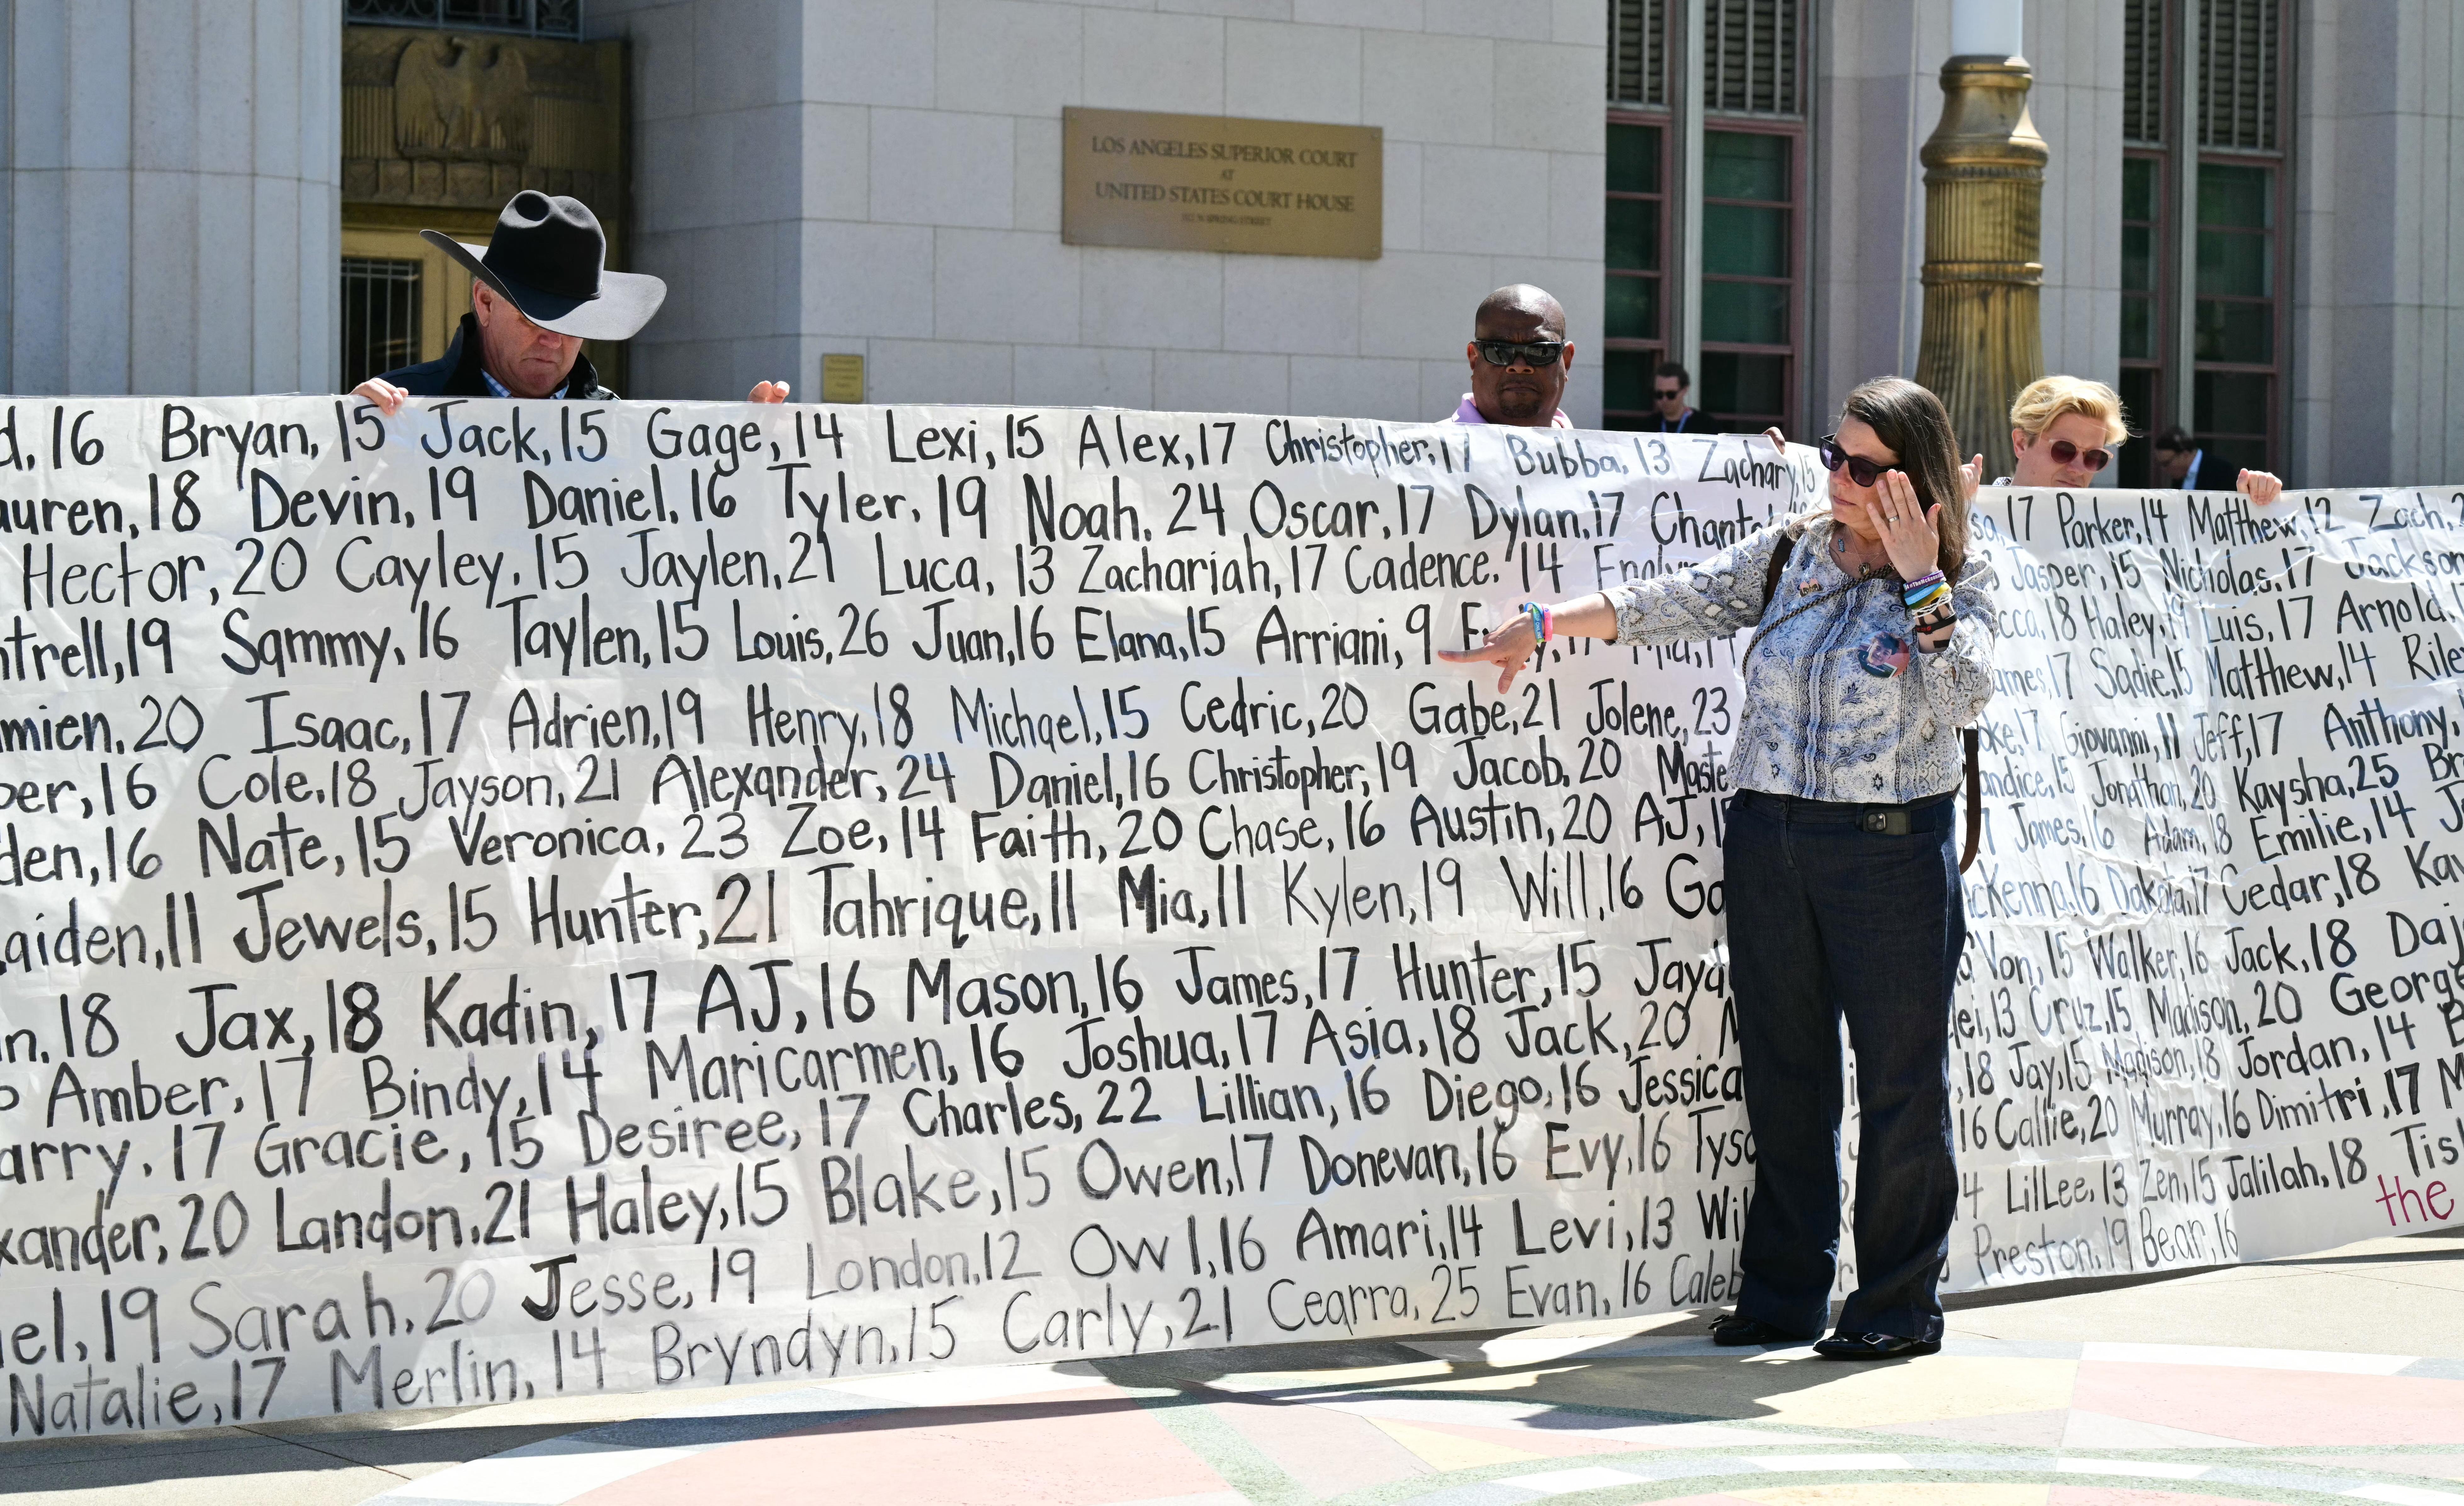 LOS ANGELES SUPERIOR COURT
AT
UNITED STATES COURT HOUSE
312 N SPRING STREET
16 Bryan, 15 Jack, 15 Gage, 14 Lexi, 15 Alex, 17 Christopher, 17 Bubba, 13 Zachary, 15
18 Devin, 19 Daniel, 16 Tyler, 19 Noah, 24 Oscar, 17 Dylan, 17
Hector, 20 Cayley, 15 Jaylen, 21 Luca, 13 Zachariah, 17 Cadence, 14
19 Sammy, 16 Taylen, 15 Louis, 26 Juan, 16 Elana, 15 Arriani, 9
20 Isaac, 17 Adrien, 19 Henry, 18 Michael, 15 Cedric, 20 Gabe, 21 Jolene, 23
16 Cole, 18 Jayson, 21 Alexander, 24 Daniel, 16 Christopher, 19 Jacob, 20
16 Nate, 15 Veronica, 23 Zoe, 14 Faith, 20 Chase, 16 Austin, 20 AJ,
11 Jewels, 15 Hunter, 21 Tahrique, 11 Mia, 11 Kylen, 19 Will, 16
18 Jax, 18 Kadin, 17 AJ, 16 Mason, 16 James, 17 Hunter, 15
Amber, 17 Bindy, 14 Maricarmen, 16 Joshua, 17 Asia, 18 Jack, 20
17 Gracie, 15 Desiree, 17 Charles, 22 Lillian, 16 Diego, 16 Jessica
20 Landon, 21 Haley, 15 Blake, 15 Owen, 17 Donevan, 16 Evy, 16
19 Sarah, 20 Jesse, 19 London, 12 Ow 1, 16 Amari, 14 Levi, 13
Natalie, 17 Merlin, 14 Bryndyn, 15 Carly, 21 Cearra, 25 Evan, 16 Caleb
17 Parker, 14 Matthew, 12 Zach,
Jasper, 15 Nicholas, 17 Jackson
18 Haley, 19 Luis, 17 Arnold,
17 Sadie, 15 Matthew, 14
17 Giovanni, 11 Jeff, 17 Anthony,
15 Jonathan, 20 Kaysha, 25
James, 16 Adam, 18 Emilie, 14
16 Dakota, 17 Cedar, 18
Von, 15 Walker, 16 Jack, 18
13 Cruz, 15 Madison, 20
18 Jay, 15 Madison, 18 Jordan, 14
16 Callie, 20 Murray, 16 Dimitri, 17
LilLee, 13 Zen, 15 Jalilah, 18
Preston, 19 Bear, 16
the